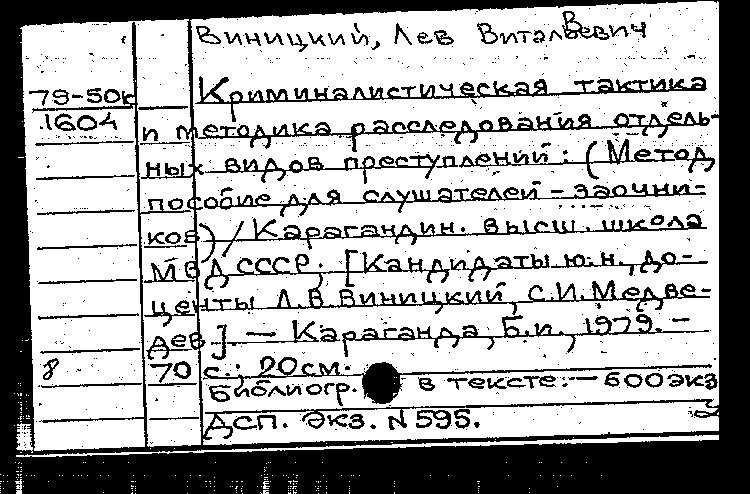 Виницкий, Лев Витальевич
79-50к Криминалистическая тактика
1604 и методика расследования отдель-
ных видов преступлений: (Метод.
пособие для слушателей-заочни-
ков) / Карагандин. высш. школа
МВД СССР; [Кандидаты ю.н., до-
центы Л.В. Виницкий, С.И. Медве-
дев]. — Караганда, Б.и., 1979. —
8 70 с.; 20см.
Библиогр. в тексте. — 600экз
ДСП. Экз. N595.